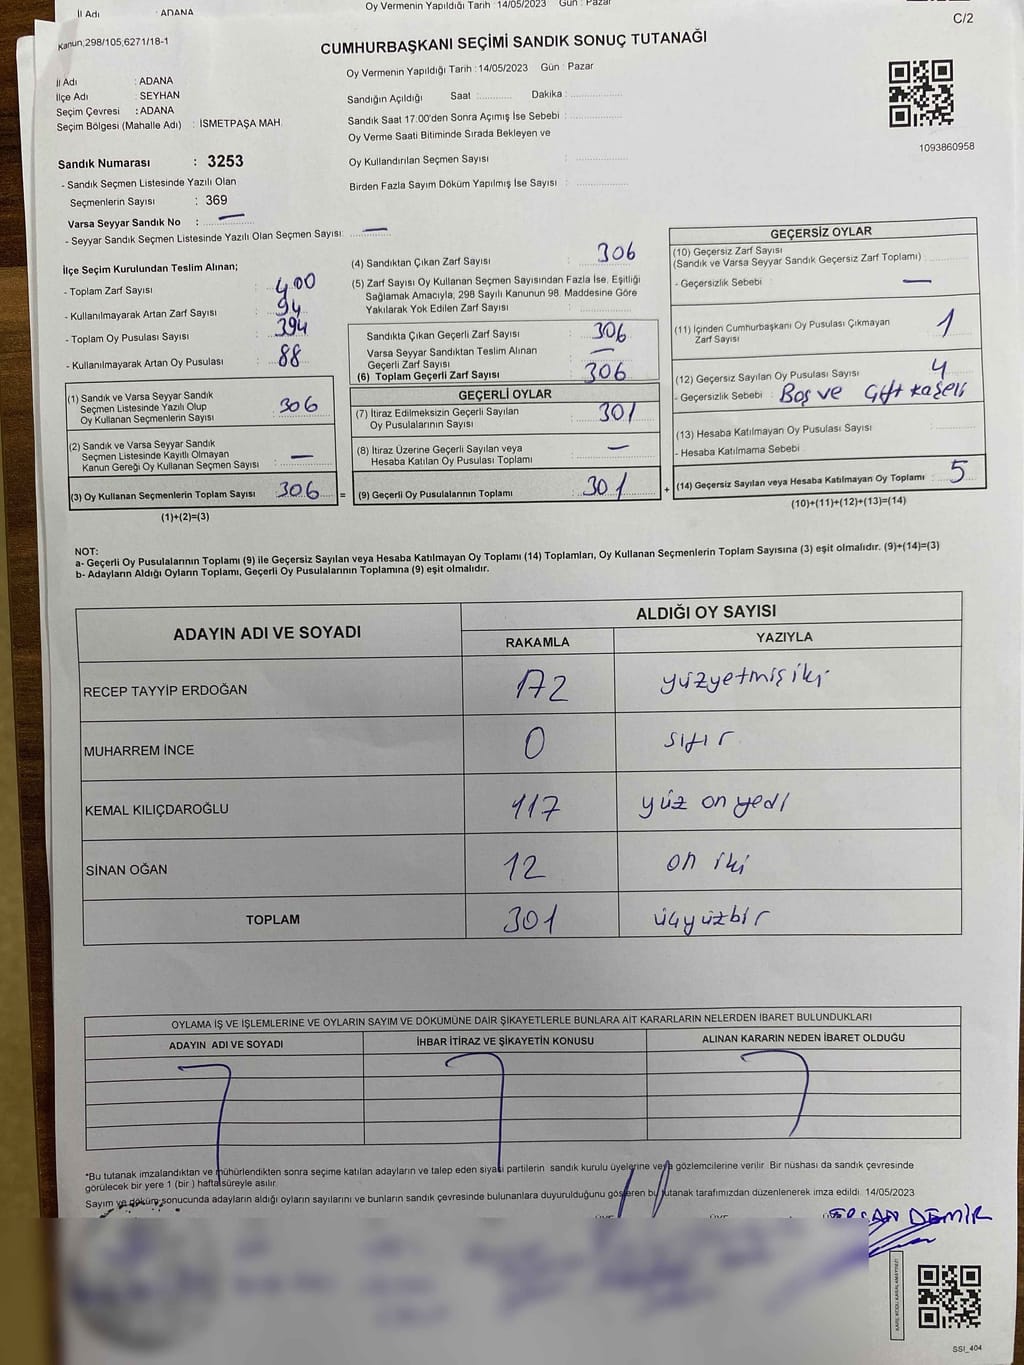 İl Adı : ADANA
Oy Vermenin Yapıldığı Tarih : 14/05/2023 Gün : Pazar
C/2
Kanun,298/105,6271/18-1
CUMHURBAŞKANI SEÇİMİ SANDIK SONUÇ TUTANAĞI
İl Adı : ADANA
İlçe Adı : SEYHAN
Seçim Çevresi : ADANA
Seçim Bölgesi (Mahalle Adı) : İSMETPAŞA MAH.
Sandık Numarası : 3253
- Sandık Seçmen Listesinde Yazılı Olan
Seçmenlerin Sayısı : 369
Varsa Seyyar Sandık No : —
- Seyyar Sandık Seçmen Listesinde Yazılı Olan Seçmen Sayısı: —
Oy Vermenin Yapıldığı Tarih : 14/05/2023 Gün : Pazar
Sandığın Açıldığı Saat : Dakika :
Sandık Saat 17:00'den Sonra Açımış İse Sebebi :
Oy Verme Saati Bitiminde Sırada Bekleyen ve
Oy Kullandırılan Seçmen Sayısı :
Birden Fazla Sayım Döküm Yapılmış İse Sayısı :
1093860958
İlçe Seçim Kurulundan Teslim Alınan;
- Toplam Zarf Sayısı : 400
- Kullanılmayarak Artan Zarf Sayısı : 94
- Toplam Oy Pusulası Sayısı : 394
- Kullanılmayarak Artan Oy Pusulası : 88
(1) Sandık ve Varsa Seyyar Sandık
Seçmen Listesinde Yazılı Olup
Oy Kullanan Seçmenlerin Sayısı : 306
(2) Sandık ve Varsa Seyyar Sandık
Seçmen Listesinde Kayıtlı Olmayan
Kanun Gereği Oy Kullanan Seçmen Sayısı : —
(3) Oy Kullanan Seçmenlerin Toplam Sayısı : 306 =
(1)+(2)=(3)
(4) Sandıktan Çıkan Zarf Sayısı : 306
(5) Zarf Sayısı Oy Kullanan Seçmen Sayısından Fazla İse, Eşitliği
Sağlamak Amacıyla, 298 Sayılı Kanunun 98. Maddesine Göre
Yakılarak Yok Edilen Zarf Sayısı :
Sandıkta Çıkan Geçerli Zarf Sayısı : 306
Varsa Seyyar Sandıktan Teslim Alınan
Geçerli Zarf Sayısı : —
(6) Toplam Geçerli Zarf Sayısı : 306
GEÇERLİ OYLAR
(7) İtiraz Edilmeksizin Geçerli Sayılan
Oy Pusulalarının Sayısı : 301
(8) İtiraz Üzerine Geçerli Sayılan veya
Hesaba Katılan Oy Pusulası Toplamı : —
(9) Geçerli Oy Pusulalarının Toplamı : 301 +
GEÇERSİZ OYLAR
(10) Geçersiz Zarf Sayısı
(Sandık ve Varsa Seyyar Sandık Geçersiz Zarf Toplamı) :
- Geçersizlik Sebebi : —
(11) İçinden Cumhurbaşkanı Oy Pusulası Çıkmayan
Zarf Sayısı : 1
(12) Geçersiz Sayılan Oy Pusulası Sayısı : 4
- Geçersizlik Sebebi : Boş ve Çift kaşeli
(13) Hesaba Katılmayan Oy Pusulası Sayısı :
- Hesaba Katılmama Sebebi :
(14) Geçersiz Sayılan veya Hesaba Katılmayan Oy Toplamı : 5
(10)+(11)+(12)+(13)=(14)
NOT:
a- Geçerli Oy Pusulalarının Toplamı (9) ile Geçersiz Sayılan veya Hesaba Katılmayan Oy Toplamı (14) Toplamları, Oy Kullanan Seçmenlerin Toplam Sayısına (3) eşit olmalıdır. (9)+(14)=(3)
b- Adayların Aldığı Oyların Toplamı, Geçerli Oy Pusulalarının Toplamına (9) eşit olmalıdır.
ADAYIN ADI VE SOYADI
ALDIĞI OY SAYISI
RAKAMLA YAZIYLA
RECEP TAYYİP ERDOĞAN 172 yüzyetmişiki
MUHARREM İNCE 0 sıfır
KEMAL KILIÇDAROĞLU 117 yüz onyedi
SİNAN OĞAN 12 on iki
TOPLAM 301 üçyüzbir
OYLAMA İŞ VE İŞLEMLERİNE VE OYLARIN SAYIM VE DÖKÜMÜNE DAİR ŞİKAYETLERLE BUNLARA AİT KARARLARIN NELERDEN İBARET BULUNDUKLARI
ADAYIN ADI VE SOYADI İHBAR İTİRAZ VE ŞİKAYETİN KONUSU ALINAN KARARIN NEDEN İBARET OLDUĞU
*Bu tutanak imzalandıktan ve mühürlendikten sonra seçime katılan adayların ve talep eden siyasi partilerin sandık kurulu üyelerine veya gözlemcilerine verilir. Bir nüshası da sandık çevresinde
görülecek bir yere 1 (bir ) hafta süreyle asılır.
Sayım ve döküm sonucunda adayların aldığı oyların sayılarını ve bunların sandık çevresinde bulunanlara duyurulduğunu gösteren bu tutanak tarafımızdan düzenlenerek imza edildi. 14/05/2023
DEMİR
SSI_404